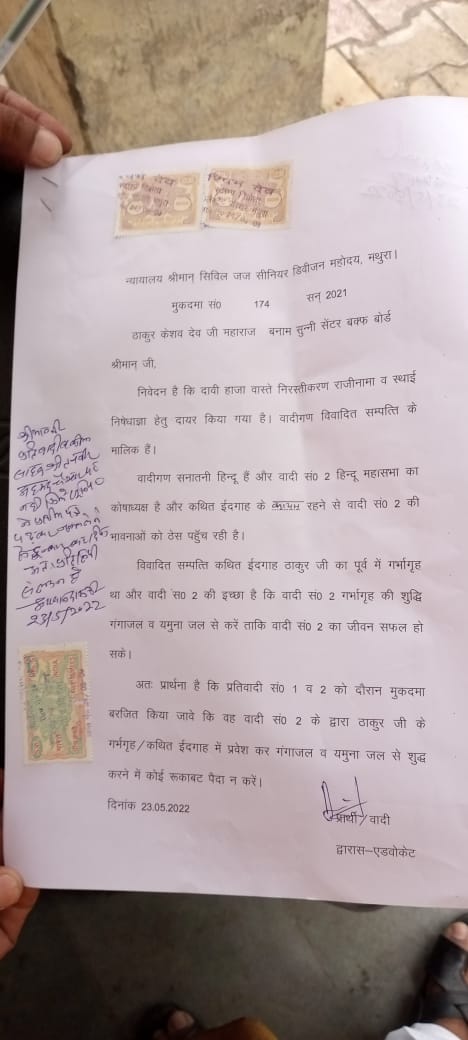 न्यायालय श्रीमान् सिविल जज सीनियर डिवीजन महोदय, मथुरा।
मुकदमा सं0 174 सन् 2021
ठाकुर केशव देव जी महाराज बनाम सुन्नी सेंटर बक्फ बोर्ड
श्रीमान् जी,
निवेदन है कि दावी हाजा वास्ते निरस्तीकरण राजीनामा व स्थाई
निषेधाज्ञा हेतु दायर किया गया है। वादीगण विवादित सम्पत्ति के
मालिक हैं।
वादीगण सनातनी हिन्दू हैं और वादी सं0 2 हिन्दू महासभा का
कोषाध्यक्ष है और कथित ईदगाह के कायम रहने से वादी सं0 2 की
भावनाओं को ठेस पहुँच रही है।
विवादित सम्पत्ति कथित ईदगाह ठाकुर जी का पूर्व में गर्भागृह
था और वादी सं0 2 की इच्छा है कि वादी सं0 2 गर्भागृह की शुद्धि
गंगाजल व यमुना जल से करें ताकि वादी सं0 2 का जीवन सफल हो
सके।
अतः प्रार्थना है कि प्रतिवादी सं0 1 व 2 को दौरान मुकदमा
बरजित किया जावे कि वह वादी सं0 2 के द्वारा ठाकुर जी के
गर्भगृह/कथित ईदगाह में प्रवेश कर गंगाजल व यमुना जल से शुद्ध
करने में कोई रूकाबट पैदा न करें।
दिनांक 23.05.2022
प्रार्थी/वादी
द्वारास-एडवोकेट
श्रीमानजी
23/5/2022